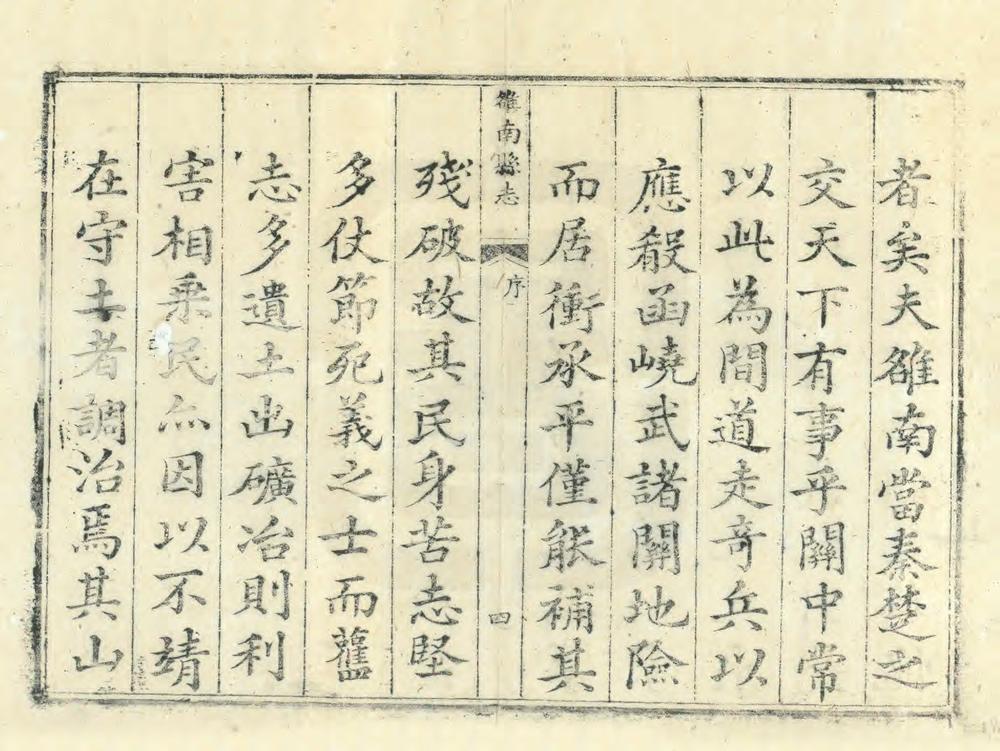 者矣夫雒南當秦楚之
交天下有事乎關中常
以此為間道走奇兵以
應殽函嶢武諸關地險
而居衝承平僅能補其
雒南縣志
序
四
殘破故其民身苦志堅
多仗節死義之士而舊
志多遺土出礦冶則利
害相乘民亦因以不靖
在守土者調治焉其山